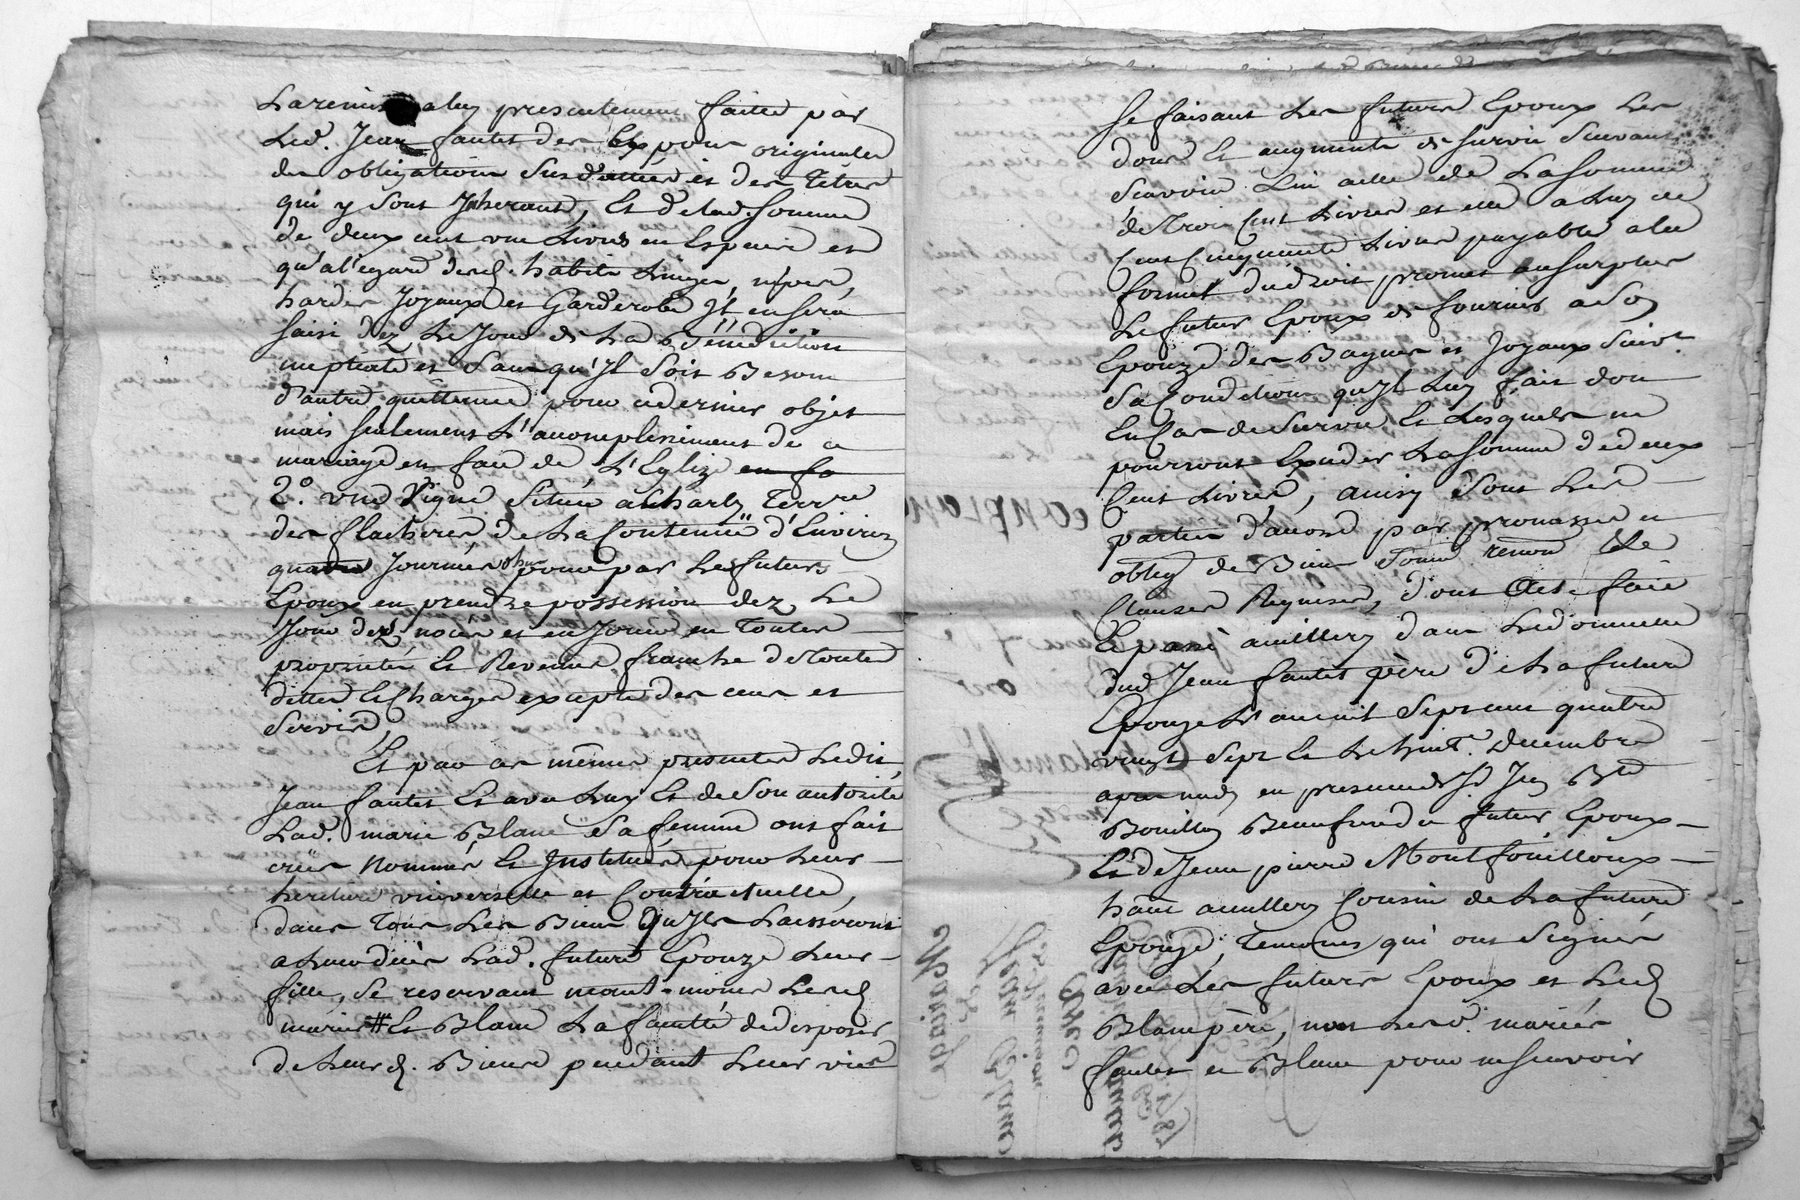 La remise a luy presentement faitte par
Led. Jean fautet des Expons originales
des obligations Susdattées et des Titres
qui y sont Inherants, Et de lad. somme
de deux cent une Livres en Espece et
qu'a l'egard desd. habits Linges, nipes,
hardes Joyaux et Garderobe Il en sera
saisi dez Le Jour de La Benediction
nuptiale et Sans qu'Il Soit Besoin
d'autre quittance pour ce dernier objet
mais seulement L'accomplissiment de ce
mariage en face de L'Eglize en fa
2°. une Vigne Située a Charly Terroir
des flacheres de La Contenue d'Environ
quatre Journées pour par Les futurs
Epoux en prendre possession dez Le
Jour des noces et en Jouir en Toutes
proprieté Et Revenus franche de toutes
dettes Et Charges excepté des cens et
Servis
Et par ces mêmes presentes Ledit
Jean fautet Et avec Luy Et de Son autorité
Lad. marie Blanc Sa femme ont fait
créer nommer Et Instituer pour Leur
heritiere universelle et Contractuelle,
dans Tous Les Biens qu'Ils Laisseront
a Leur décès Lad. future Epouze Leur
fille, Se reservant neant-moins Lesd
mariés # Et Blanc La faculté de disposer
de Leursd. Biens pendant Leur vie
Se faisant Les futurs Epoux Les
dons Et augments de Survie Suivants
Scavoir Lui a elle de La Somme
de Trois Cent Livres et elle a Luy de
Cent Cinquante Livres payable a la
forme du droit promet au surplus
Le futur Epoux de fournir a Son
Epouze des Bagues et Joyaux Suivt.
Sa Condition qu'Il Luy fait don
En Cas de Survie, Et Lesquels ne
pourront Exceder La Somme de deux
Cent Livres, ainsy Sont Les
parties d'accord par promesses et
oblig de Biens Soum renon Et
Clauses Requises, dont Acte fait
Et passé a millery dans Le domicille
dud Jean fautet père de La future
Epouze L'an mil Sept cent quatre
vingt Sept Et Le huit. Decembre
apres midy en presence de Sr Jn Bte
Bouillon Beaufrere du futur Epoux
Et de Jean pierre Montfouilloux
hant a millery Cousin de La future
Epouze, Temoins qui ont Signés
avec Les futurs Epoux et Led
Blanc père, non Lesd. mariés
fautet et Blanc pour ne Scavoir